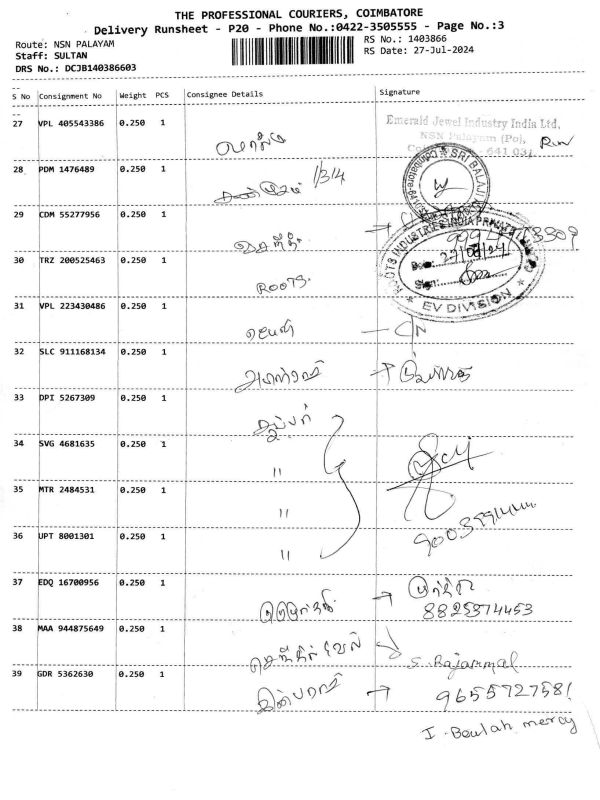 THE PROFESSIONAL COURIERS, COIMBATORE
Delivery Runsheet - P20 - Phone No.:0422-3505555 - Page No.:3
Route: NSN PALAYAM
RS No.: 1403866
Staff: SULTAN
RS Date: 27-Jul-2024
DRS No.: DCJB140386603
S No Consignment No Weight PCS Consignee Details Signature
27 VPL 405543386 0.250 1
Emerald Jewel Industry India Ltd,
NSN Palayam (Po),
- 641 031
28 PDM 1476489 0.250 1
SRI BALAJI
29 CDM 55277956 0.250 1
30 TRZ 200525463 0.250 1 ROOTS
ROOTS INDUSTRIES INDIA PRIVATE
Date: 27/07/24
Sign:
EV DIVISION
31 VPL 223430486 0.250 1
32 SLC 911168134 0.250 1
33 DPI 5267309 0.250 1
34 SVG 4681635 0.250 1 "
35 MTR 2484531 0.250 1 "
36 UPT 8001301 0.250 1 "
37 EDQ 16700956 0.250 1
8825374453
38 MAA 944875649 0.250 1 செந்தில் வேல்
S. Rajammal
39 GDR 5362630 0.250 1 இன்பராஜ்
9655727581
I. Beulah mercy